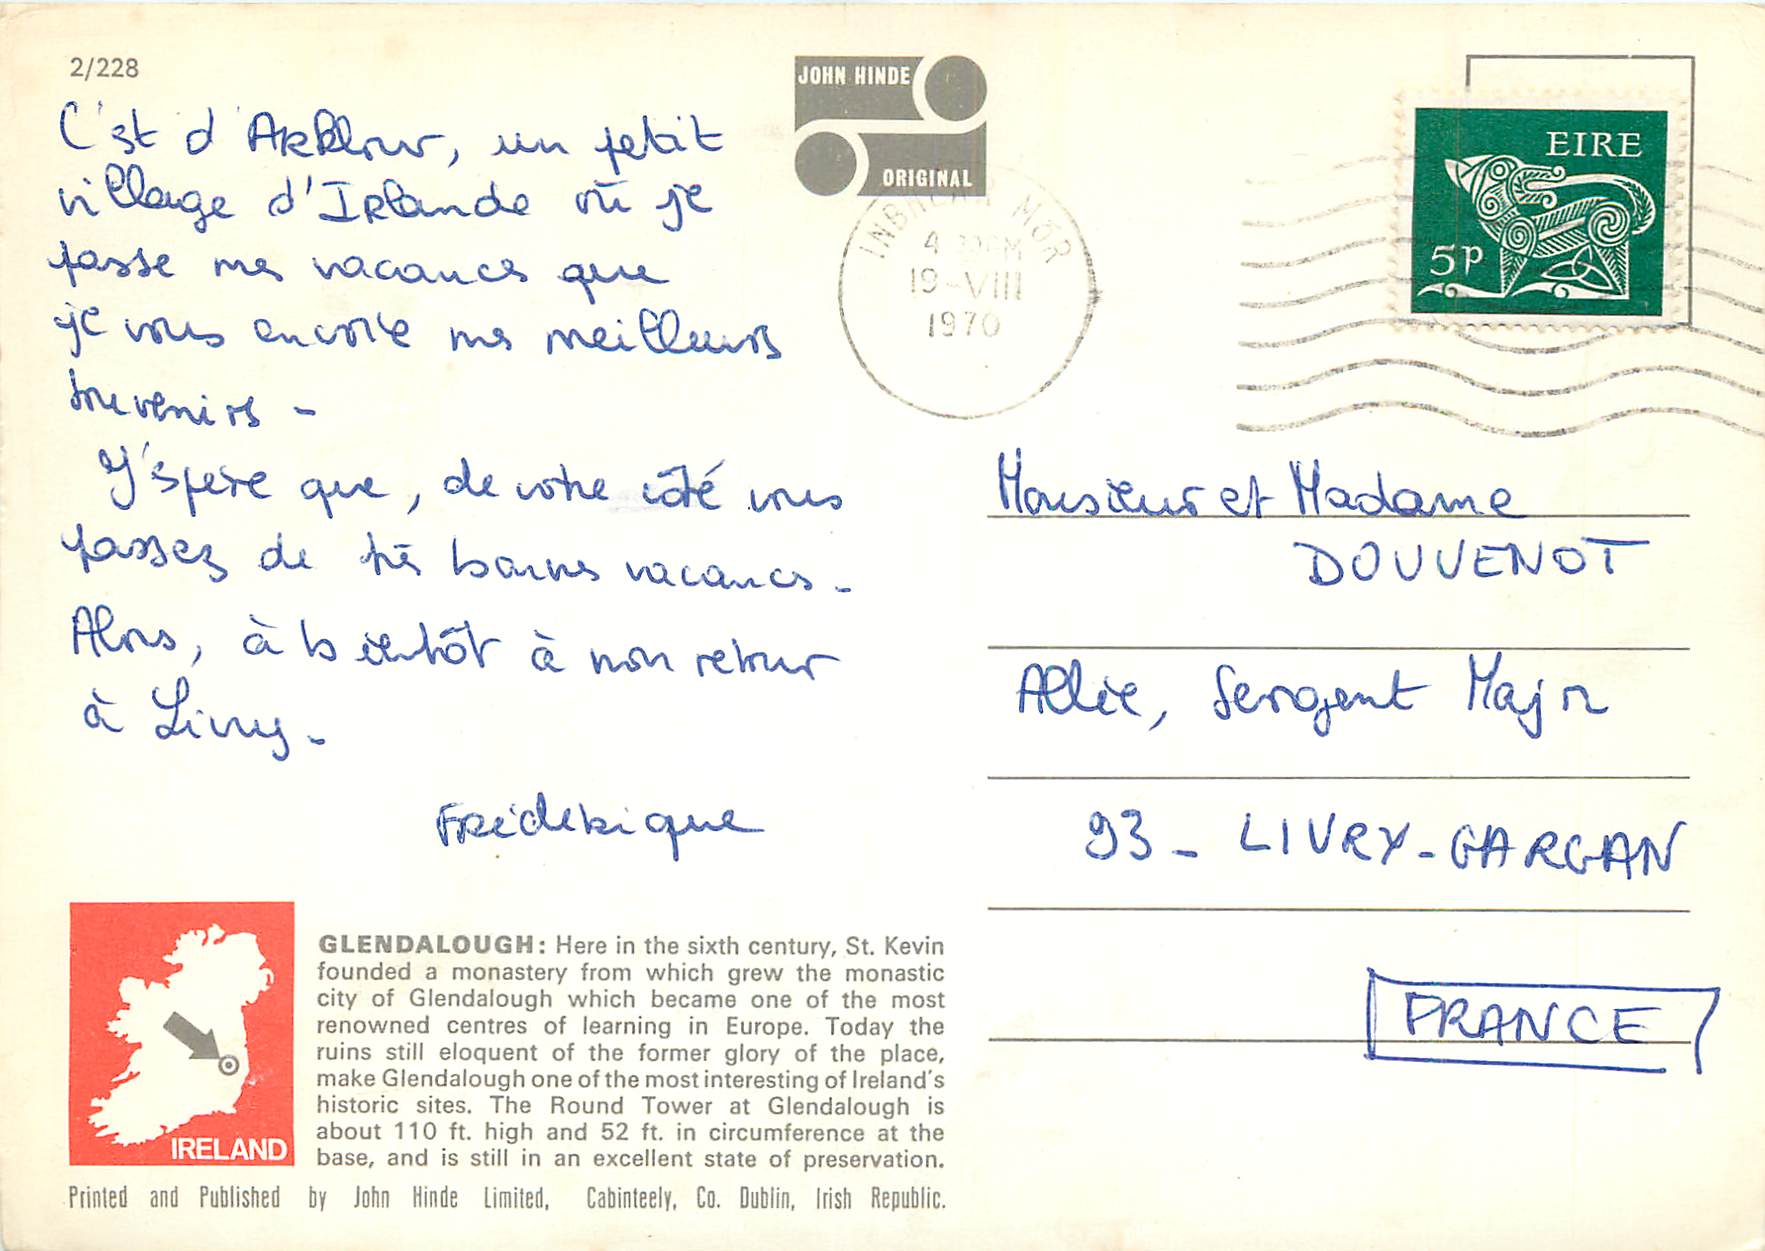 2/228
C'est d'Arklow, un petit
village d'Irlande où je
passe mes vacances que
je vous envoie mes meilleurs
souvenirs -
J'espère que, de votre côté vous
passez de très bonnes vacances -
Alors, à bientôt à mon retour
à Livry -
Frédérique
JOHN HINDE
ORIGINAL
INBHEAR MÓR
4 PM
19-VIII
1970
EIRE
5p
Monsieur et Madame
DOUVENOT
Allée, Sergent Major
93 - LIVRY-GARGAN
FRANCE
IRELAND
GLENDALOUGH: Here in the sixth century, St. Kevin
founded a monastery from which grew the monastic
city of Glendalough which became one of the most
renowned centres of learning in Europe. Today the
ruins still eloquent of the former glory of the place,
make Glendalough one of the most interesting of Ireland's
historic sites. The Round Tower at Glendalough is
about 110 ft. high and 52 ft. in circumference at the
base, and is still in an excellent state of preservation.
Printed and Published by John Hinde Limited, Cabinteely, Co. Dublin, Irish Republic.